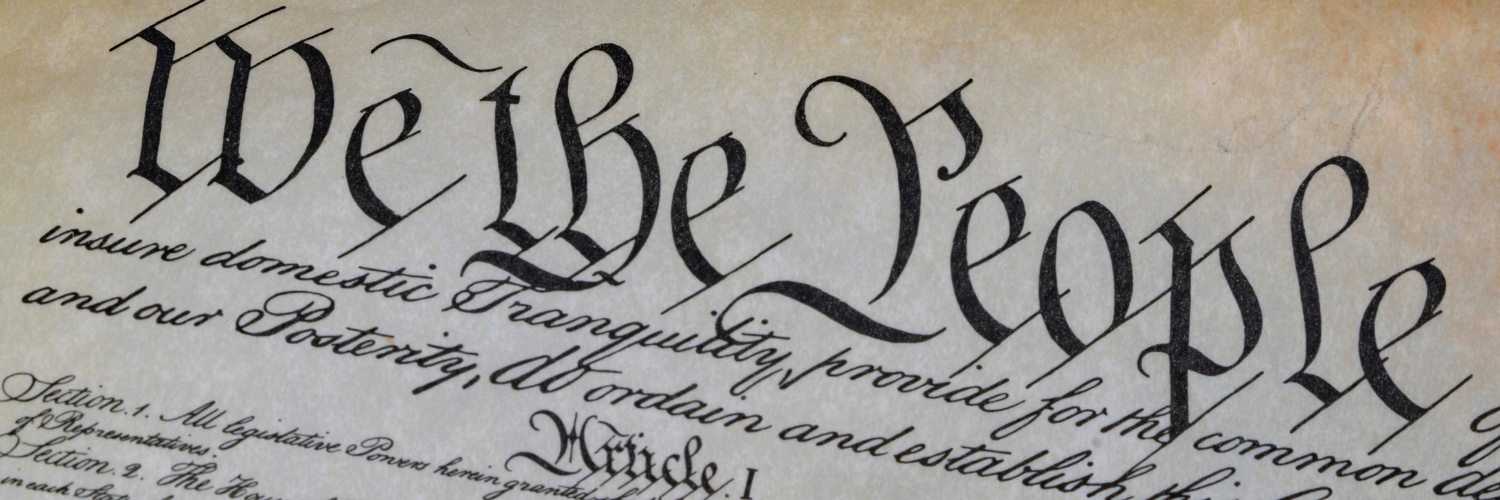 We the People
insure domestic Tranquility, provide for the common
and our Posterity, do ordain and establish this
Article. I
Section. 1. All legislative Powers herein granted
of Representatives.
Section. 2. The
in each